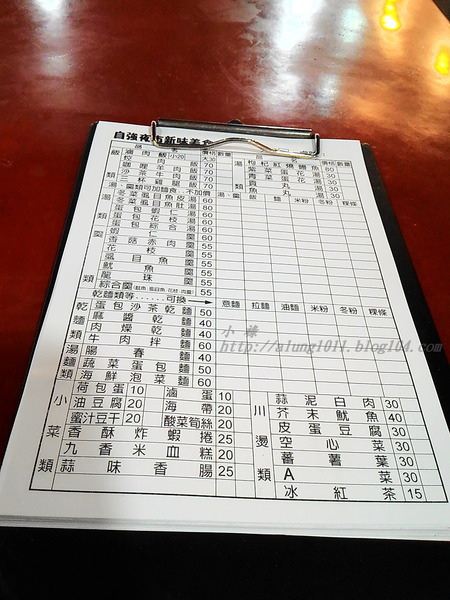 自強夜市新味美食
品 名 價格 數量 品 名 價格 數量
飯類
滷肉飯 小20 大30
焢肉飯 70
咖哩羊肉飯 70
沙茶牛肉飯 70
三杯雞腿飯 70
湯類
枸杞紅燒鰻魚 80
紫菜蛋花湯 30
青菜蛋花湯 30
貢丸湯 30
魚丸湯 30
湯、羹類可加麵食、不加價
湯、羹 飯 麵 米粉 冬粉 粿條
湯類
冬菜虱目魚皮湯 60
冬菜虱目魚肚湯 60
蛋包蝦仁湯 60
蛋包花枝湯 60
蛋包綜合湯 60
羹類
蝦仁羹 60
香菇赤肉羹 55
花枝羹 55
虱目魚羹 55
魷魚羹 55
龍珠羹 55
綜合羹 55
乾麵類等……可換→ 意麵 拉麵 油麵 米粉 冬粉 粿條
乾麵類
蛋包沙茶乾麵 50
麻醬乾麵 40
肉燥乾麵 40
牛肉拌麵 60
湯麵類
陽春麵 40
蔬菜蛋包麵 50
海鮮泡菜麵 60
小菜類
荷包蛋 10 滷蛋 10
油豆腐 20 海帶 20
蜜汁豆干 20 酸菜筍絲 20
香酥炸蝦捲 25
九香米血糕 20
蒜味香腸 25
川燙類
蒜泥白肉 30
芥末魷魚 40
皮蛋豆腐 30
空心菜 30
蕃薯葉 30
A菜 30
冰紅茶 15
小蟑
http://alung1011.blog104.com